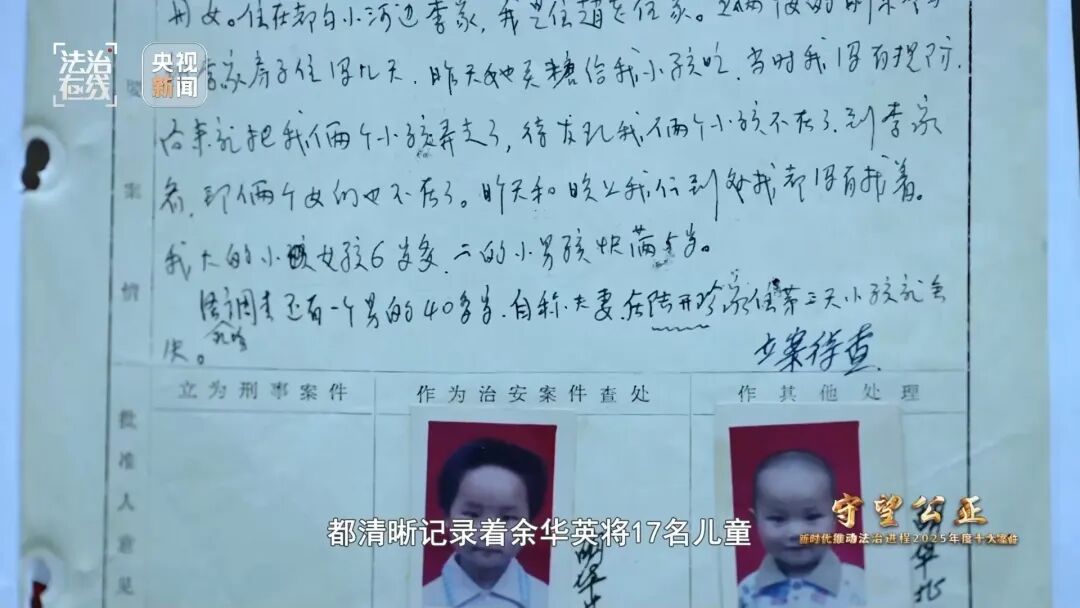 用女。住在都白小河边李家，我是住赵
李家房子住没几天，昨天她买糖给我小孩吃，当时我没有提防，
后来就把我们俩个小孩弄走了，待发现我们俩个小孩不在了，到李家
看，那俩个女的也不在了。昨天和晚上我们到处找都没有找着。
我大的小孩女孩6岁多，二的小男孩快满5岁。
调查还有一个男的40多岁，自称夫妻，在陆开珍家住第三天小孩就丢
失。
立案侦查
案情
立为刑事案件 作为治安案件查处 作其他处理
批准人意见
法治在线
央视新闻
都清晰记录着余华英将17名儿童
守望公正
新时代推动法治进程2025年度十大案件